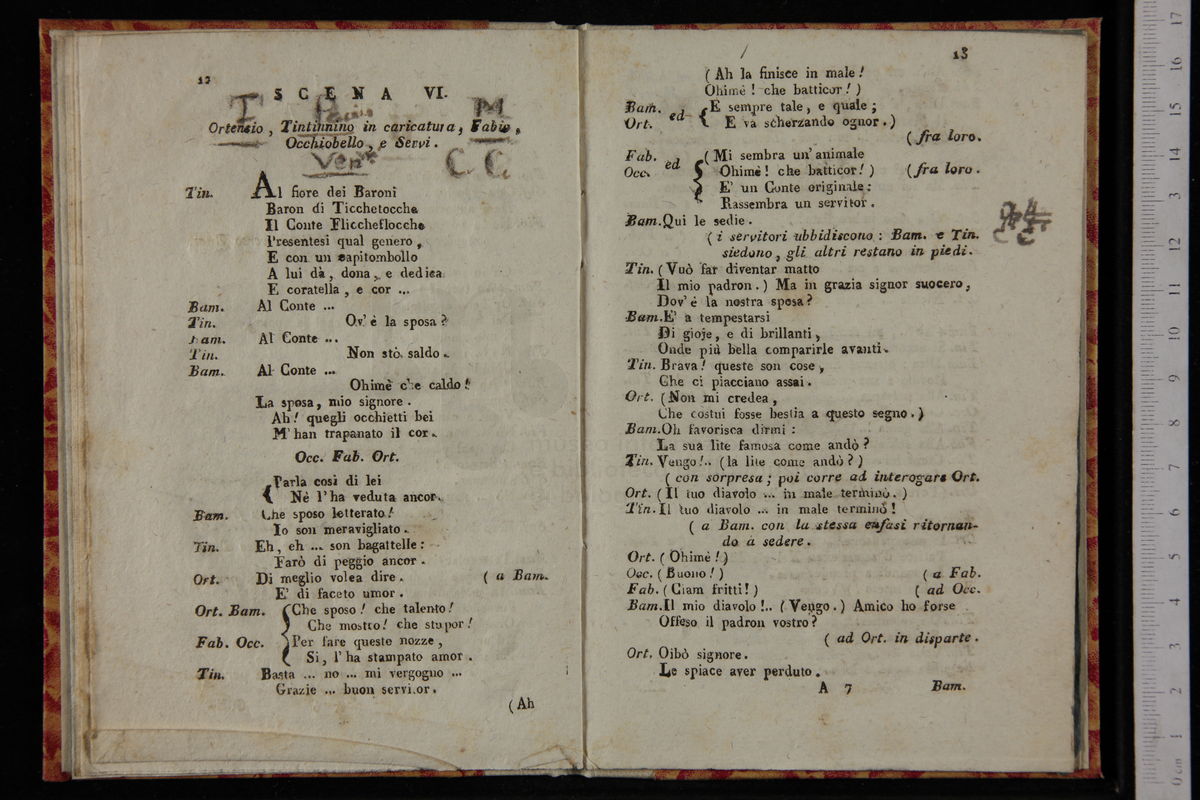 12
SCENA VI.
Ortensio, Tintinnino in caricatura, Fabio,
Occhiobello, e Servi.
C. C.
Tin. Al fiore dei Baroni
Baron di Ticchetocche
Il Conte Fliccheflocche
Presentesi qual genero,
E con un capitombollo
A lui dà, dona, e dedica
E coratella, e cor ...
Bam. Al Conte ...
Tin. Ov' è la sposa?
Bam. Al Conte ...
Tin. Non stò saldo.
Bam. Al Conte ...
Ohimè che caldo!
La sposa, mio signore.
Ah! quegli occhietti bei
M' han trapanato il cor.
Occ. Fab. Ort.
Parla così di lei
Nè l'ha veduta ancor.
Bam. Che sposo letterato!
Io son meravigliato.
Tin. Eh, eh ... son bagattelle:
Farò di peggio ancor.
Ort. Di meglio volea dire. ( a Bam.
E' di faceto umor.
Ort. Bam. Che sposo! che talento!
Che mostro! che stupor!
Fab. Occ. Per fare queste nozze,
Si, l'ha stampato amor.
Tin. Basta ... no ... mi vergogno ...
Grazie ... buon servitor.
(Ah
13
(Ah la finisce in male!
Ohimè! che batticor!)
Bam. ed E sempre tale, e quale;
Ort. E và scherzando ognor.)
(fra loro.
Fab. ed (Mi sembra un' animale
Occ. Ohimè! che batticor!) (fra loro.
E' un Conte originale:
Rassembra un servitor.
Bam. Qui le sedie.
(i servitori ubbidiscono: Bam. e Tin.
siedono, gli altri restano in piedi.
Tin. (Vuò far diventar matto
Il mio padron.) Ma in grazia signor suocero,
Dov' è la nostra sposa?
Bam. E' a tempestarsi
Di gioje, e di brillanti,
Onde più bella comparirle avanti.
Tin. Brava! queste son cose,
Che ci piacciano assai.
Ort. (Non mi credea,
Che costui fosse bestia a questo segno.)
Bam. Oh favorisca dirmi:
La sua lite famosa come andò?
Tin. Vengo!.. (la lite come andò?)
( con sorpresa; poi corre ad interogare Ort.
Ort. (Il tuo diavolo ... in male terminò.)
Tin. Il tuo diavolo ... in male terminò!
( a Bam. con la stessa enfasi ritornan-
do a sedere.
Ort. (Ohimè!)
Occ. (Buono!) ( a Fab.
Fab. (Ciam fritti!) ( ad Occ.
Bam. Il mio diavolo!.. (Vengo.) Amico ho forse
Offeso il padron vostro?
( ad Ort. in disparte.
Ort. Oibò signore.
Le spiace aver perduto.
A 7 Bam.
0 cm 1 2 3 4 5 6 7 8 9 10 11 12 13 14 15 16 17